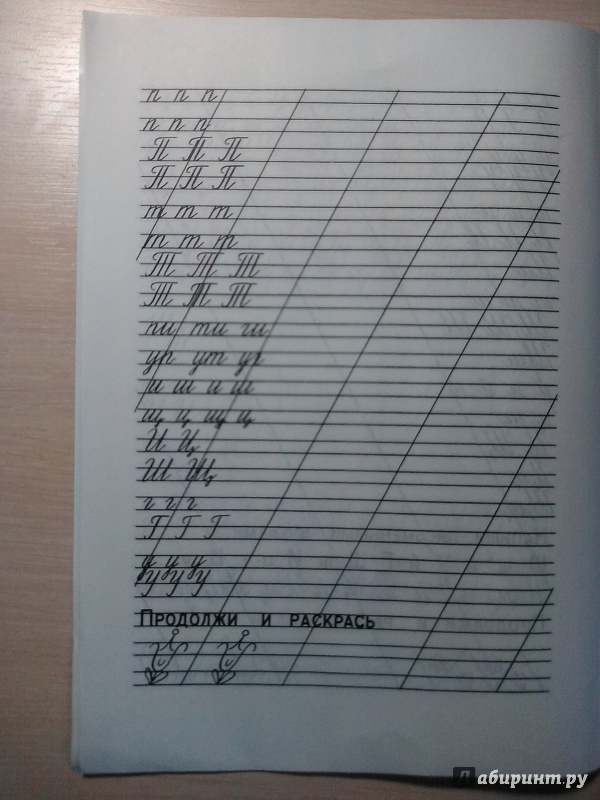 п п п
п п п
П П П
П П П
т т т
т т т
Т Т Т
Т Т Т
пи ти ги
ур ут ур
и ш и ш
щ ц щ ц
И Ц
Ш Щ
г г г
Г Г Г
у у у
У У У
ПРОДОЛЖИ И РАСКРАСЬ
Лабиринт.ру